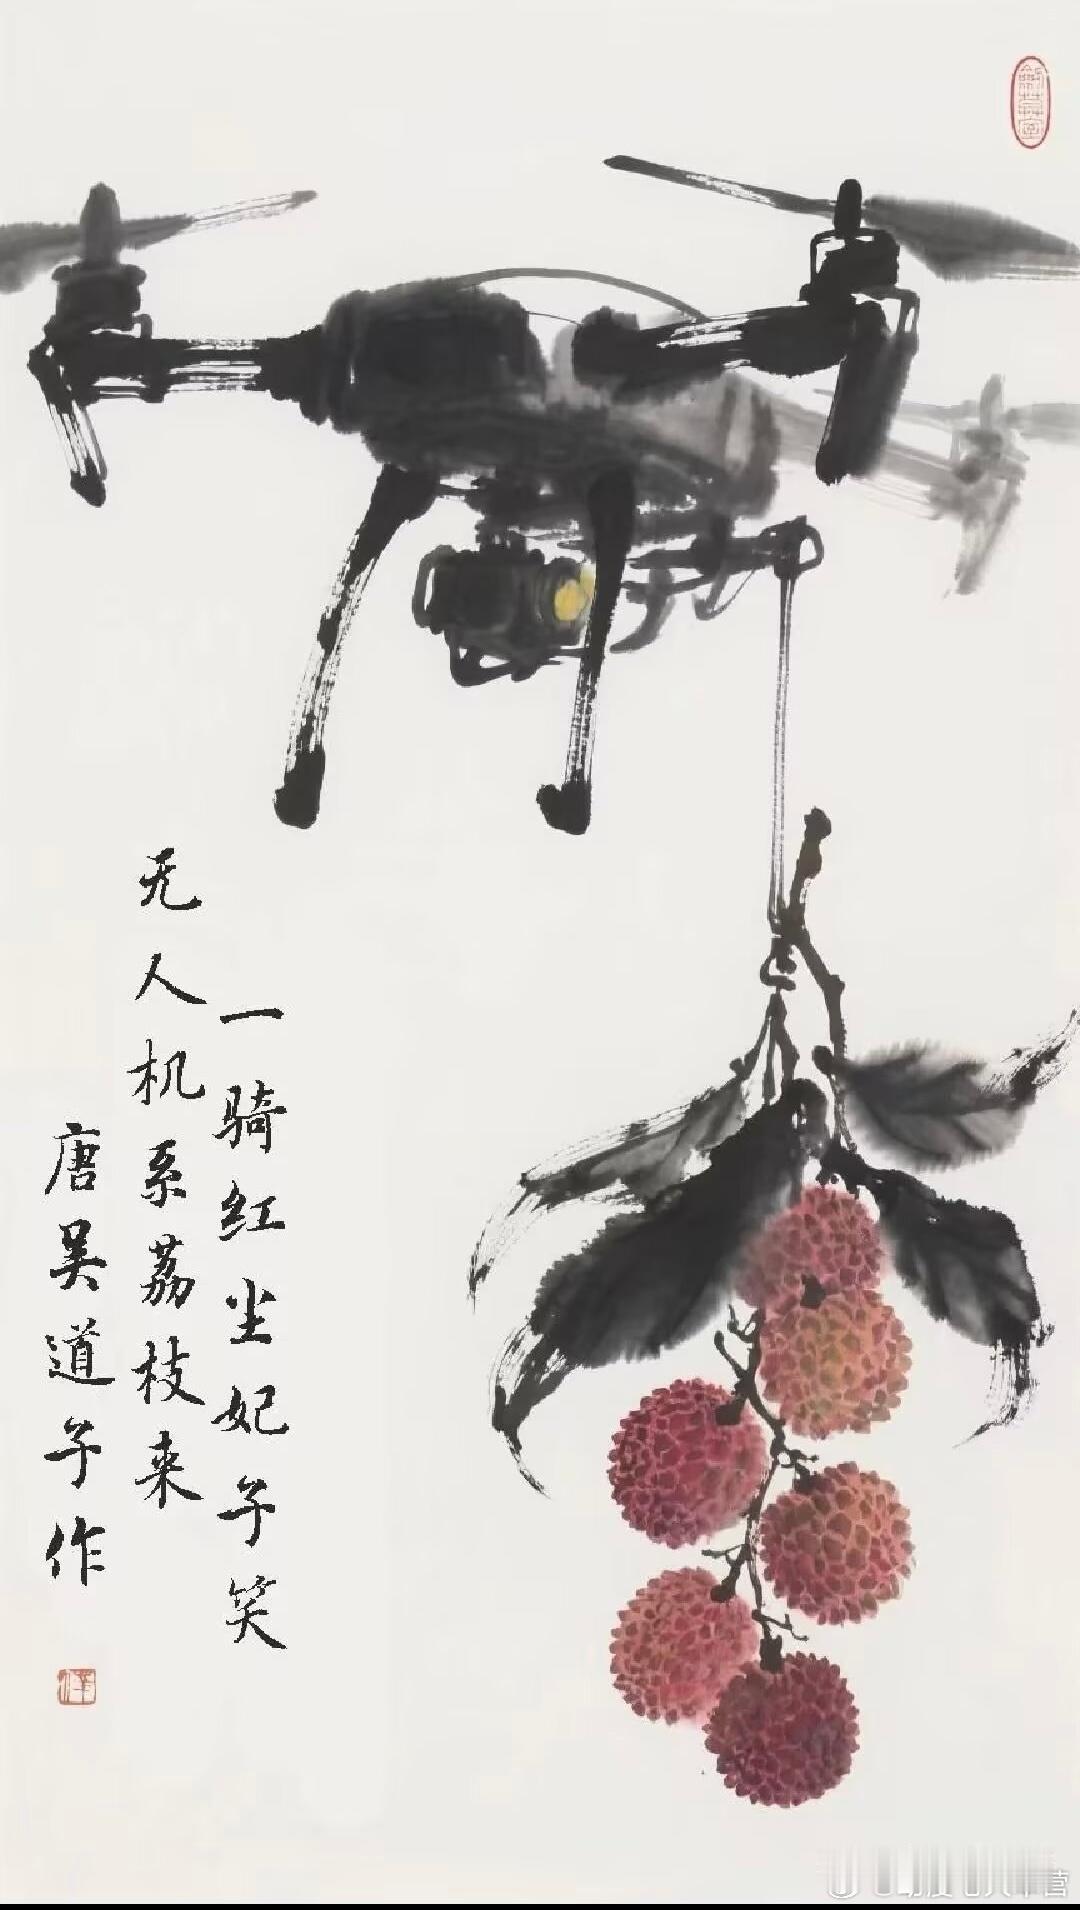 一骑红尘妃子笑
无人机系荔枝来
唐吴道子作